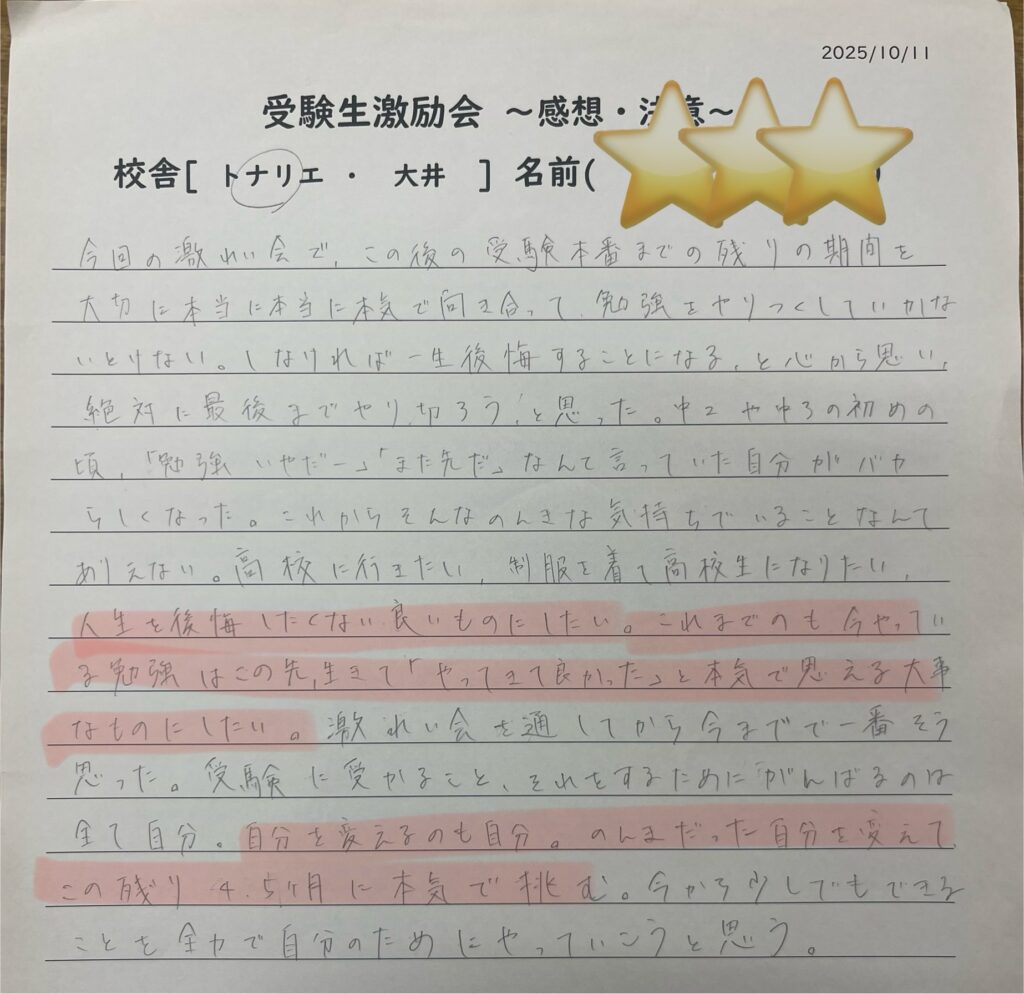 2025/10/11
受験生激励会 ~感想・注意~
校舎[ トナリエ ・ 大井 ] 名前(
今回の激れい会で、この後の受験本番までの残りの期間を
大切に本当に本当に本気で向き合って、勉強をやりつくしていかな
いといけない。しなければ一生後悔することになる、と心から思い、
絶対に最後までやり切ろう!と思った。中2や中3の初めの
頃、「勉強いやだー」「まだ先だ」なんて言っていた自分がバカ
らしくなった。これからそんなのんきな気持ちでいることなんて
ありえない。高校に行きたい、制服を着て高校生になりたい、
人生を後悔したくない良いものにしたい。これまでのも今やってい
る勉強はこの先、生きて「やってきて良かった」と本気で思える大事
なものにしたい。激れい会を通してから今までで一番そう
思った。受験に受かること、それをするためにがんばるのは
全て自分。自分を変えるのも自分。のんきだった自分を変えて
この残り4.5ヶ月に本気で挑む。今から少しでもできる
ことを全力で自分のためにやっていこうと思う。